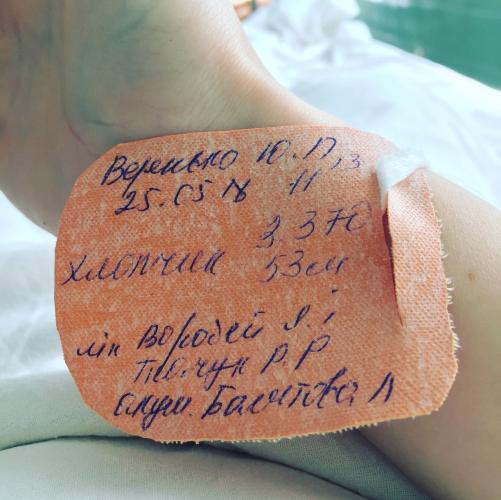 Веренько Ю.П
25.05 18 11 13
3.370
хлопчик 53см
лік Воробей Я.І
Ткачук Р.Р
акуш. Балетова Л